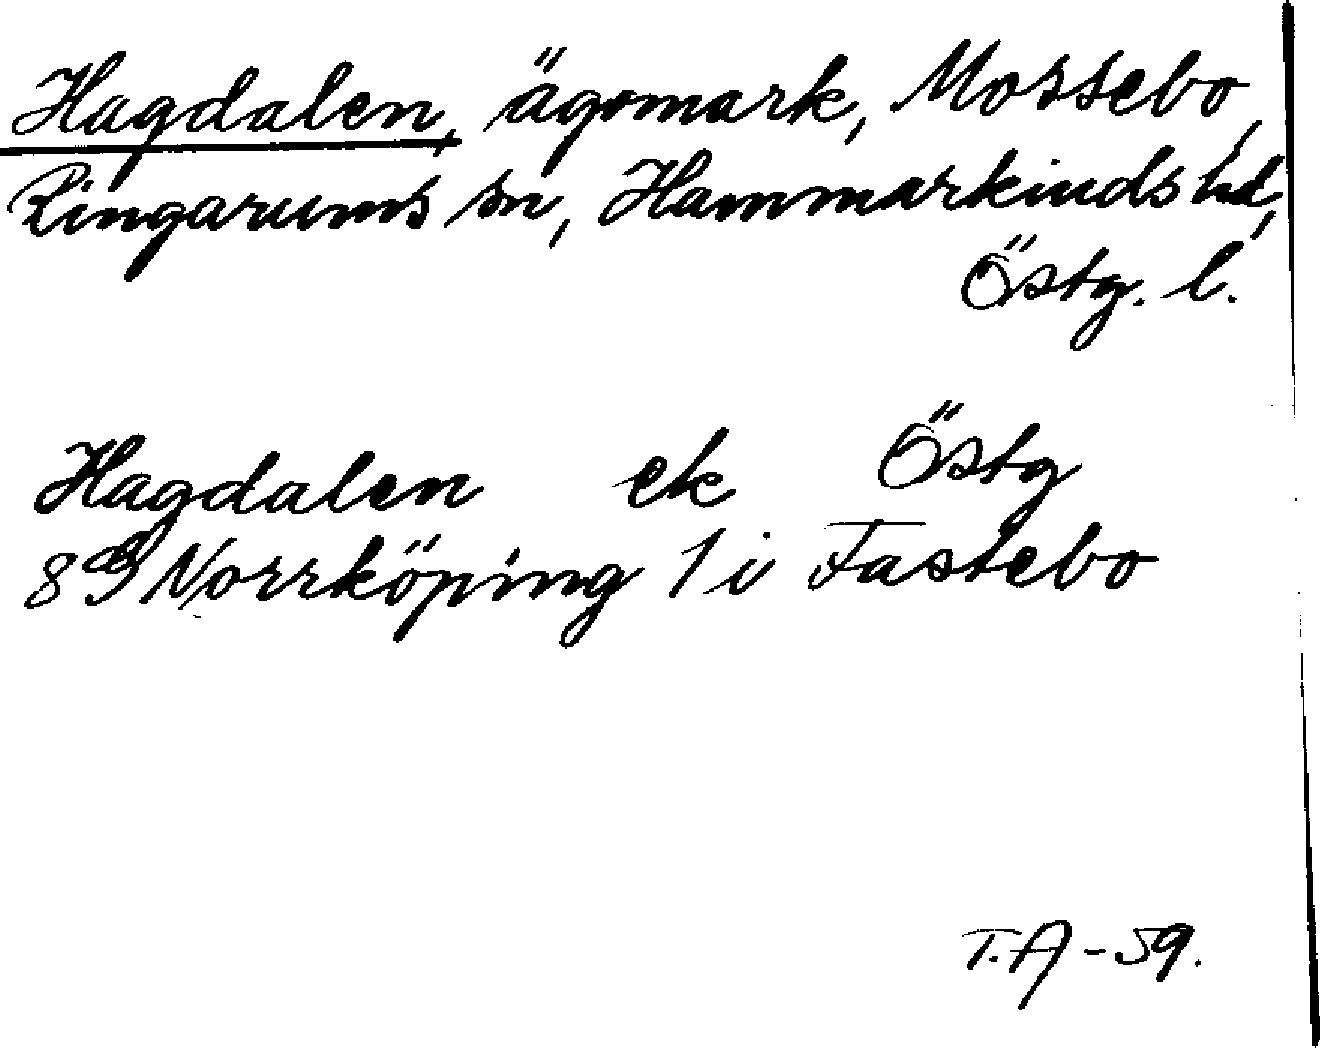 Hagdalen, ägomark, Mossebo,
Ringarums sn, Hammarkinds hd,
Östg. l.
Hagdalen ek Östg
8G Norrköping 1 i Fastebo
T.A - 59.